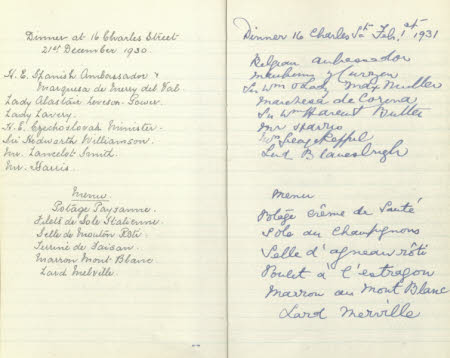 Dinner at 16 Charles Street
21st December 1930.
H.E. Spanish Ambassador &
Marquesa de Merry del Val.
Lady Alastair Leveson-Gower.
Lady Lavery.
H.E. Czechoslovak Minister.
Sir Hedworth Williamson.
Mr. Lancelot Smith.
Mr. Harris.
Menu
Potage Paysanne.
Filets de Sole
Selle de Mouton Rôti.
Terrine de Faisan.
Marron Mont Blanc
Lard Melville.
Dinner 16 Charles St Feb. 1st 1931
Belgian Ambassador
Curzon
Sir Wm & Lady Max Muller
Marchesa de
Sir Wm Harcourt Butler
Mr Harris
Mrs George Keppel
Lord Blanesburgh
Menu
Potage Crême de Santé
Sole au Champignons
Selle d'agneau rôti
Poulet à l'estragon
Marron au Mont Blanc
Lard Merville